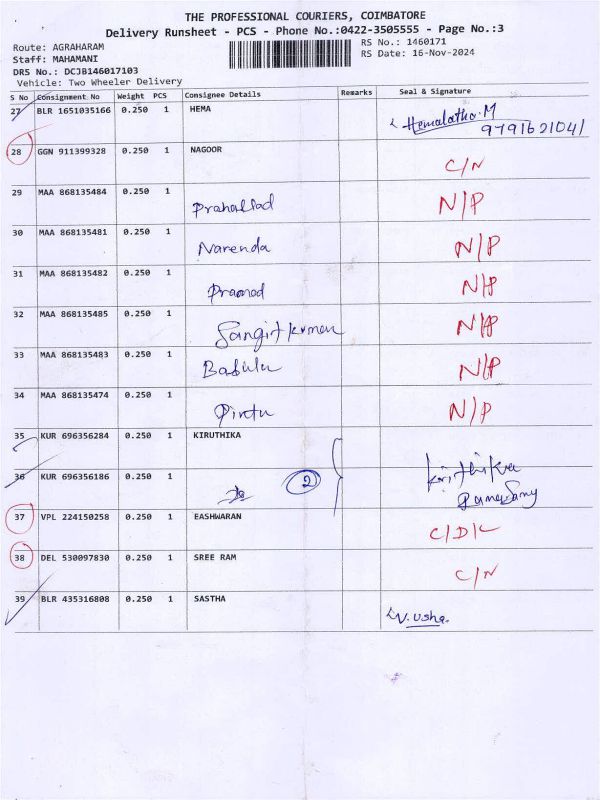 THE PROFESSIONAL COURIERS, COIMBATORE
Delivery Runsheet - PCS - Phone No.:0422-3505555 - Page No.:3
Route: AGRAHARAM
RS No.: 1460171
Staff: MAHAMANI
RS Date: 16-Nov-2024
DRS No.: DCJB146017103
Vehicle: Two Wheeler Delivery
S No Consignment No Weight PCS Consignee Details Remarks Seal & Signature
27 BLR 1651035166 0.250 1 HEMA Hemalatha.M
9791621041
28 GGN 911399328 0.250 1 NAGOOR C/N
29 MAA 868135484 0.250 1 Prahallad N/P
30 MAA 868135481 0.250 1 Narenda N/P
31 MAA 868135482 0.250 1 Pramod N/P
32 MAA 868135485 0.250 1 Sangitkumar N/P
33 MAA 868135483 0.250 1 Bablu N/P
34 MAA 868135474 0.250 1 Pintu N/P
35 KUR 696356284 0.250 1 KIRUTHIKA
36 KUR 696356186 0.250 1 2 Kiruthika
Ramasamy
37 VPL 224150258 0.250 1 EASHWARAN C/D/L
38 DEL 530097830 0.250 1 SREE RAM C/N
39 BLR 435316808 0.250 1 SASTHA V. usha.